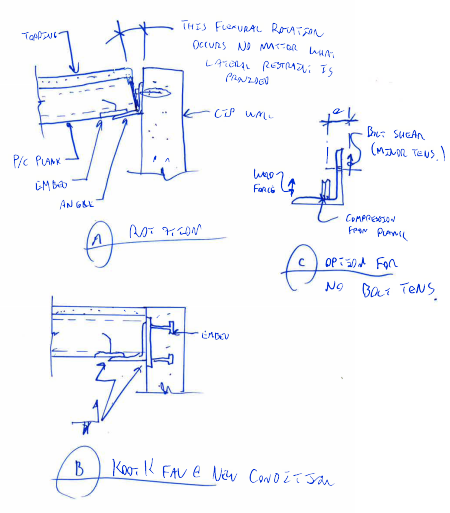 TOPPING
THIS FLEXURAL ROTATION
OCCURS NO MATTER WHAT
LATERAL RESTRAINT IS
PROVIDED
CIP WALL
P/C PLANK
EMBED
ANGLE
A ROTATION
e
BOLT SHEAR
(MINOR TENS.)
WELD
FORCE
COMPRESSION
FROM PLANK
C OPTION FOR
NO BOLT TENS.
EMBED
B FAV @ NEW CONDITION